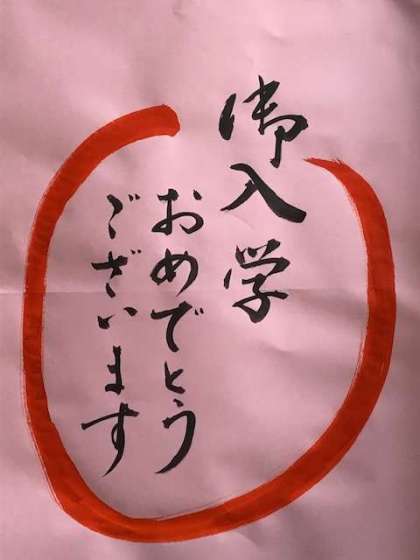 御入学
おめでとう
ございます